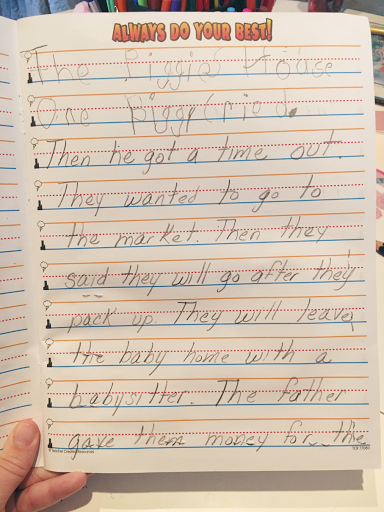 ALWAYS DO YOUR BEST!
The Piggies House
One piggy cried.
Then he got a time out.
They wanted to go to
the market. Then they
said they will go after they
pack up. They will leave
the baby home with a
babysitter. The father
gave them money for the